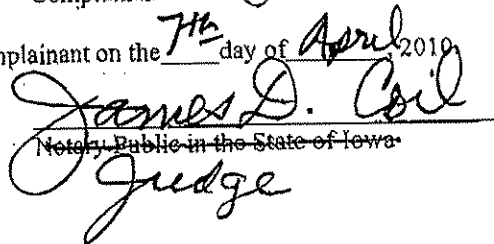 mplainant on the 7th day of April, 2010,
James D. Coil
Notary Public in the State of Iowa
Judge